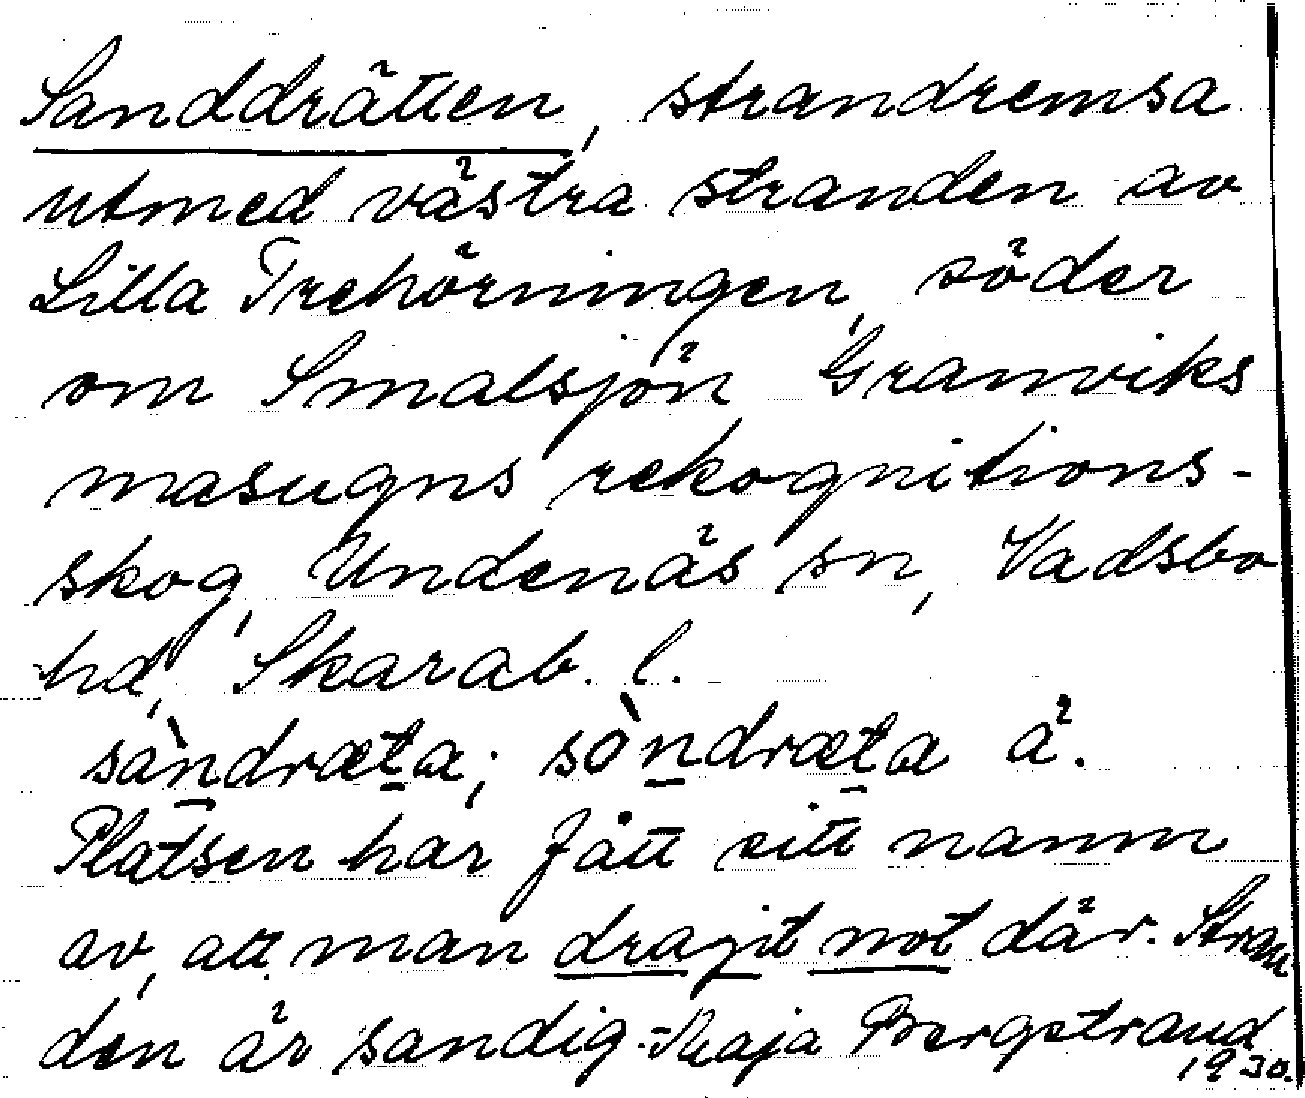 Sanddrätten, strandremsa
utmed västra stranden av
Lilla Trehörningen, söder
om Smalsjön Granviks
masugns rekognitions-
skog, Undenäs sn, Vadsbo
hd, Skarab. l.
sàndræta; sòndræta ä.
Platsen har fått sitt namn
av, att man dragit not där. Stran
den är sandig. - Maja Bergstrand
1930.